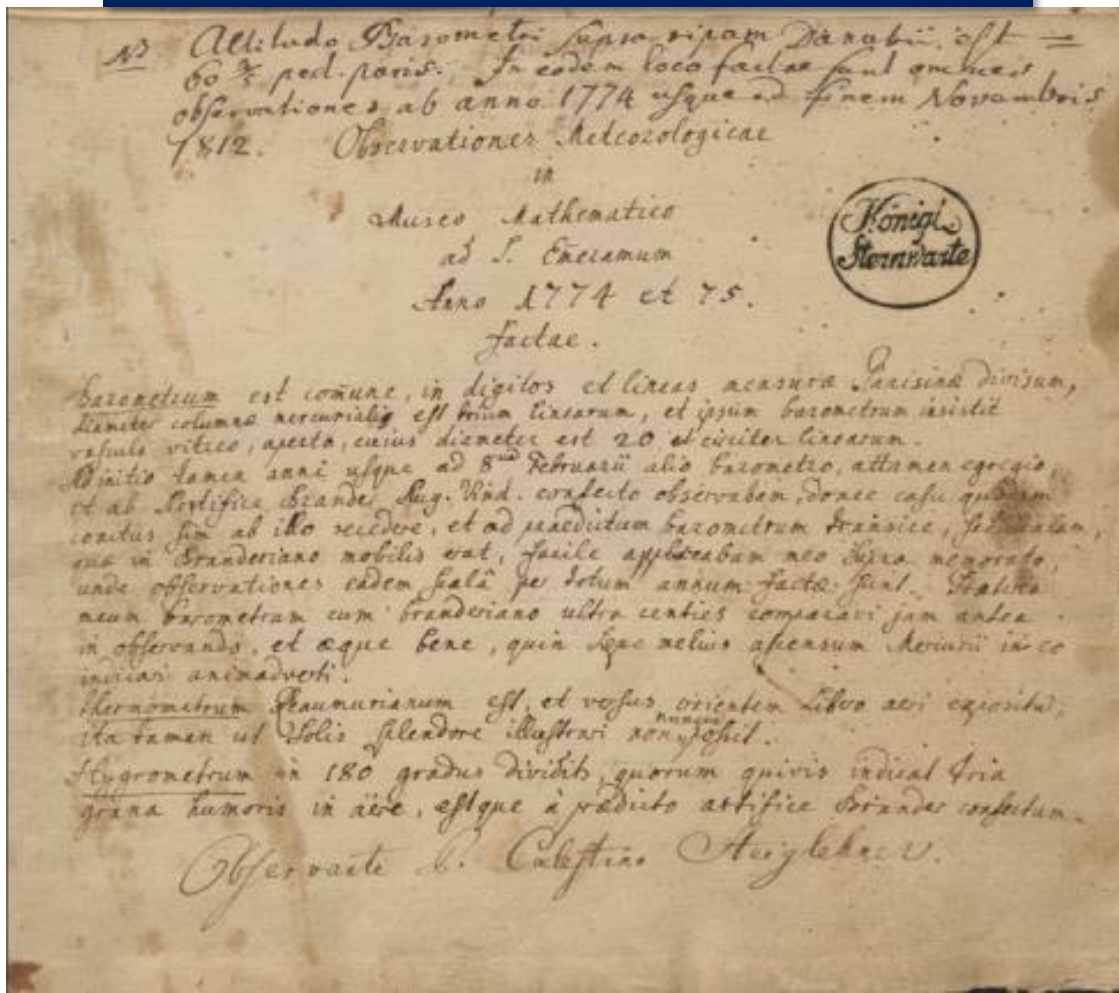 NB Altitudo Barometri supra ripam Danubii, est =
60 ped. paris. In eodem loco factae sunt omnes
observationes ab anno 1774 usque ad finem Novembris
1812. Observationes Meteorologicae
in
Museo Mathematico
ad S. Em̃eramum
Anno 1774 et 75.
factae.
Königl.
Sternwarte
Barometrum est com̃une, in digitos et lineas mensuræ Parisinæ divisum,
diameter columnæ mercurialis est trium linearum, et ipsum barometrum insistit
vasculo vitreo, aperto, cuius diameter est 20 et circiter linearum.
Ab initio tamen anni usque ad 8 Februarii alio barometro, attamen egregio,
et ab Artifice Brander Aug. Vind. confecto observabam, donec casu quodam
coactus sim ab illo recedere, et ad praedictum barometrum transire, scalam,
quæ in Branderiano mobilis erat, facile applicabam meo supra memorato,
unde observationes eadem scalâ per totum annum factæ sunt.
meum barometrum cum branderiano ultra centies comparavi jam antea
in observando, et æque bene, quin sæpe melius ascensum Mercurii in eo
indicari animadverti.
Thermometrum Reaumurianum est, et versus orientem libero aeri expositum,
ita tamen ut Solis splendore illustrari non nunquam possit.
Hygrometrum in 180 gradus dividit, quorum quivis indicat tria
grana humoris in aëre, estque à prædicto artifice Brander confectum.
Observante P. Cælestino Steiglehner